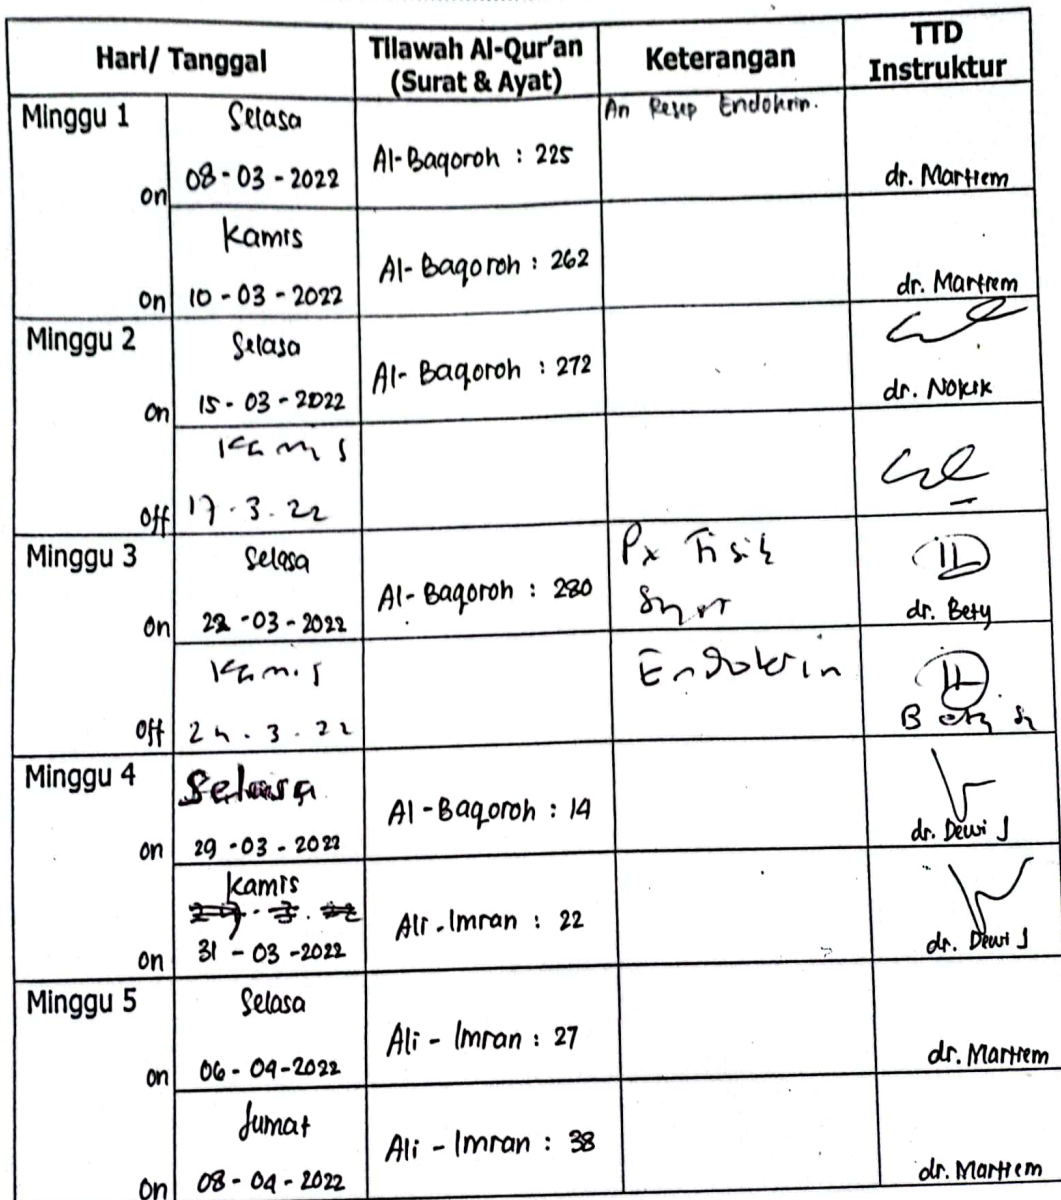 Hari/ Tanggal
Tilawah Al-Qur'an
(Surat & Ayat)
Keterangan
TTD
Instruktur
Minggu 1
on
Selasa
08-03-2022
Al-Baqoroh : 225
An Resep Endokrin.
dr. Martiem
on
Kamis
10-03-2022
Al-Baqoroh : 262
dr. Martiem
Minggu 2
on
Selasa
15-03-2022
Al-Baqoroh : 272
dr. Nokik
off
Kamis
17.3.22
Minggu 3
on
Selasa
22-03-2022
Al-Baqoroh : 280
Px Fisik
dr. Bety
off
Kamis
24.3.22
Endokrin
Minggu 4
on
Selasa
29-03-2022
Al-Baqoroh : 14
dr. Dewi J
on
Kamis
31-03-2022
Ali-Imran : 22
dr. Dewi J
Minggu 5
on
Selasa
06-04-2022
Ali-Imran : 27
dr. Martiem
on
Jumat
08-04-2022
Ali-Imran : 38
dr. Martiem